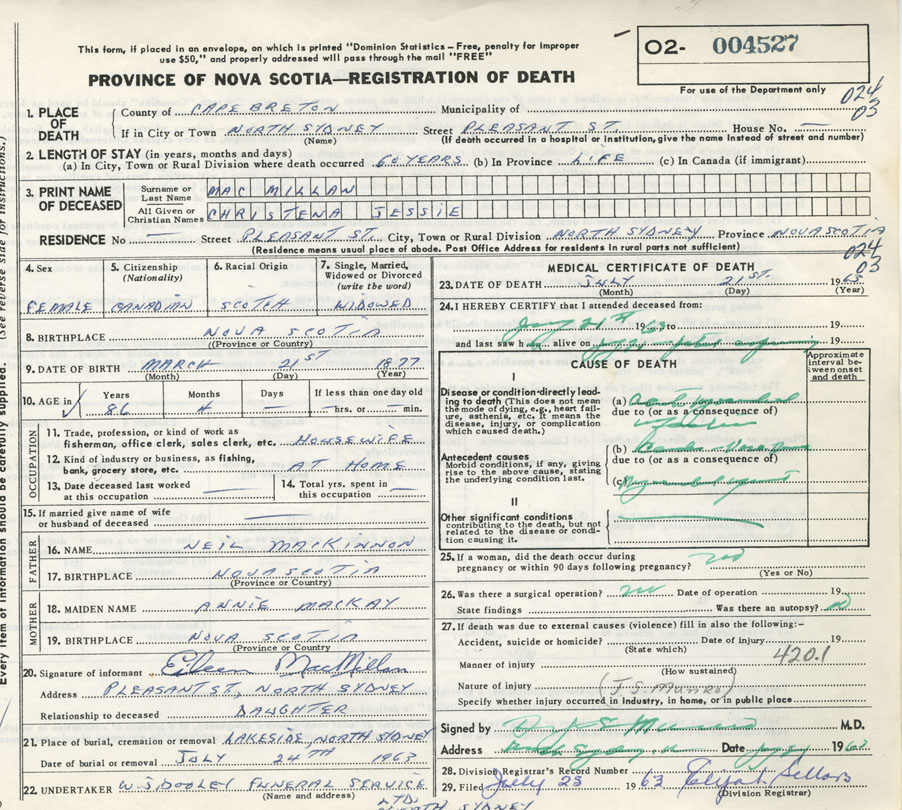 This form, if placed in an envelope, on which is printed "Dominion Statistics – Free, penalty for improper
use $50," and properly addressed will pass through the mail "FREE"
O2- 004527
PROVINCE OF NOVA SCOTIA—REGISTRATION OF DEATH
For use of the Department only
024
03
1. PLACE OF DEATH
County of CAPE BRETON Municipality of
If in City or Town NORTH SYDNEY Street PLEASANT ST. House No. —
(Name) (If death occurred in a hospital or institution, give the name instead of street and number)
2. LENGTH OF STAY (in years, months and days)
(a) In City, Town or Rural Division where death occurred 60 YEARS (b) In Province LIFE (c) In Canada (if immigrant)
3. PRINT NAME OF DECEASED
Surname or Last Name MAC MILLAN
All Given or Christian Names CHRISTENA JESSIE
RESIDENCE No — Street PLEASANT ST. City, Town or Rural Division NORTH SYDNEY Province NOVA SCOTIA
(Residence means usual place of abode. Post Office Address for residents in rural parts not sufficient)
024
03
4. Sex
FEMALE
5. Citizenship
(Nationality)
CANADIAN
6. Racial Origin
SCOTCH
7. Single, Married,
Widowed or Divorced
(write the word)
WIDOWED
8. BIRTHPLACE NOVA SCOTIA
((Province or Country)
9. DATE OF BIRTH MARCH 21ST 1877
(Month) (Day) (Year)
10. AGE in
Years Months Days If less than one day old
86 4 — — hrs. or — min.
OCCUPATION
11. Trade, profession, or kind of work as
fisherman, office clerk, sales clerk, etc. HOUSEWIFE
12. Kind of industry or business, as fishing,
bank, grocery store, etc. AT HOME
13. Date deceased last worked
at this occupation —
14. Total yrs. spent in
this occupation —
15. If married give name of wife
or husband of deceased —
FATHER
16. NAME NEIL MACKINNON
17. BIRTHPLACE NOVA SCOTIA
(Province or Country)
MOTHER
18. MAIDEN NAME ANNIE MACKAY
19. BIRTHPLACE NOVA SCOTIA
(Province or Country
20. Signature of informant Eileen MacMillan
Address PLEASANT ST., NORTH SYDNEY
Relationship to deceased DAUGHTER
21. Place of burial, cremation or removal LAKESIDE, NORTH SYDNEY
Date of burial or removal JULY 24TH 1963
22. UNDERTAKER W. J. DOOLEY FUNERAL SERVICE
(Name and address) LTD.
NORTH SYDNEY
MEDICAL CERTIFICATE OF DEATH
23. DATE OF DEATH JULY 21ST. 1963
(Month) (Day) (Year)
24. I HEREBY CERTIFY that I attended deceased from:
19 to 19
and last saw h alive on 19
CAUSE OF DEATH
Approximate interval between onset and death
I
Disease or condition directly leading to death (This does not mean
the mode of dying, e.g., heart failure, asthenia, etc. It means the
disease, injury, or complication
which caused death.)
(a)
due to (or as a consequence of
Failure
Antecedent causes
Morbid conditions, if any, giving
rise to the above cause, stating
the underlying condition last.
(b)
due to (or as a consequence of)
(c)
II
Other significant conditions
contributing to the death, but not
related to the disease or condition causing it.
25. If a woman, did the death occur during
pregnancy or within 90 days following pregnancy? no
(Yes or No)
26. Was there a surgical operation? no Date of operation 19
State findings Was there an autopsy? no
27. If death was due to external causes (violence) fill in also the following:–
Accident, suicide or homicide? Date of injury 19
(State which)
420.1
Manner of injury
(How sustained)
Nature of injury (J. S. Munro)
Specify whether injury occurred in Industry, in home, or in public place
Signed by M.D.
Address Date 1963
28. Division Registrar's Record Number
29. Filed July 25 1963
(Division Registrar)
Every item of information should be carefully supplied. (See reverse side for instructions.)